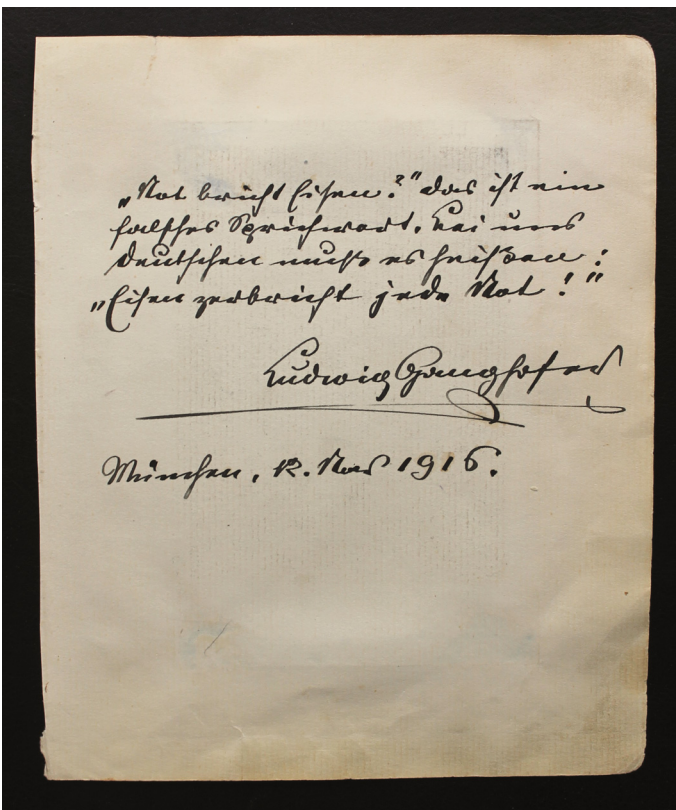 „Not bricht Eisen?“ das ist ein
falsches Sprichwort. Bei uns
Deutschen muß es heißen:
„Eisen zerbricht jede Not!“
Ludwig Ganghofer
München, 12. Nov 1916.